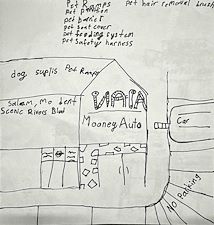 Pet Ramps
pet hair removal brush
pet partition
pet barrier
pet seat cover
pet feeding system
pet Safety harness
dog suplis Pet Ramps
Salem, Mo dent
Scenic Rivers Blvd
NAPA
Mooney Auto
Car
NO Parking